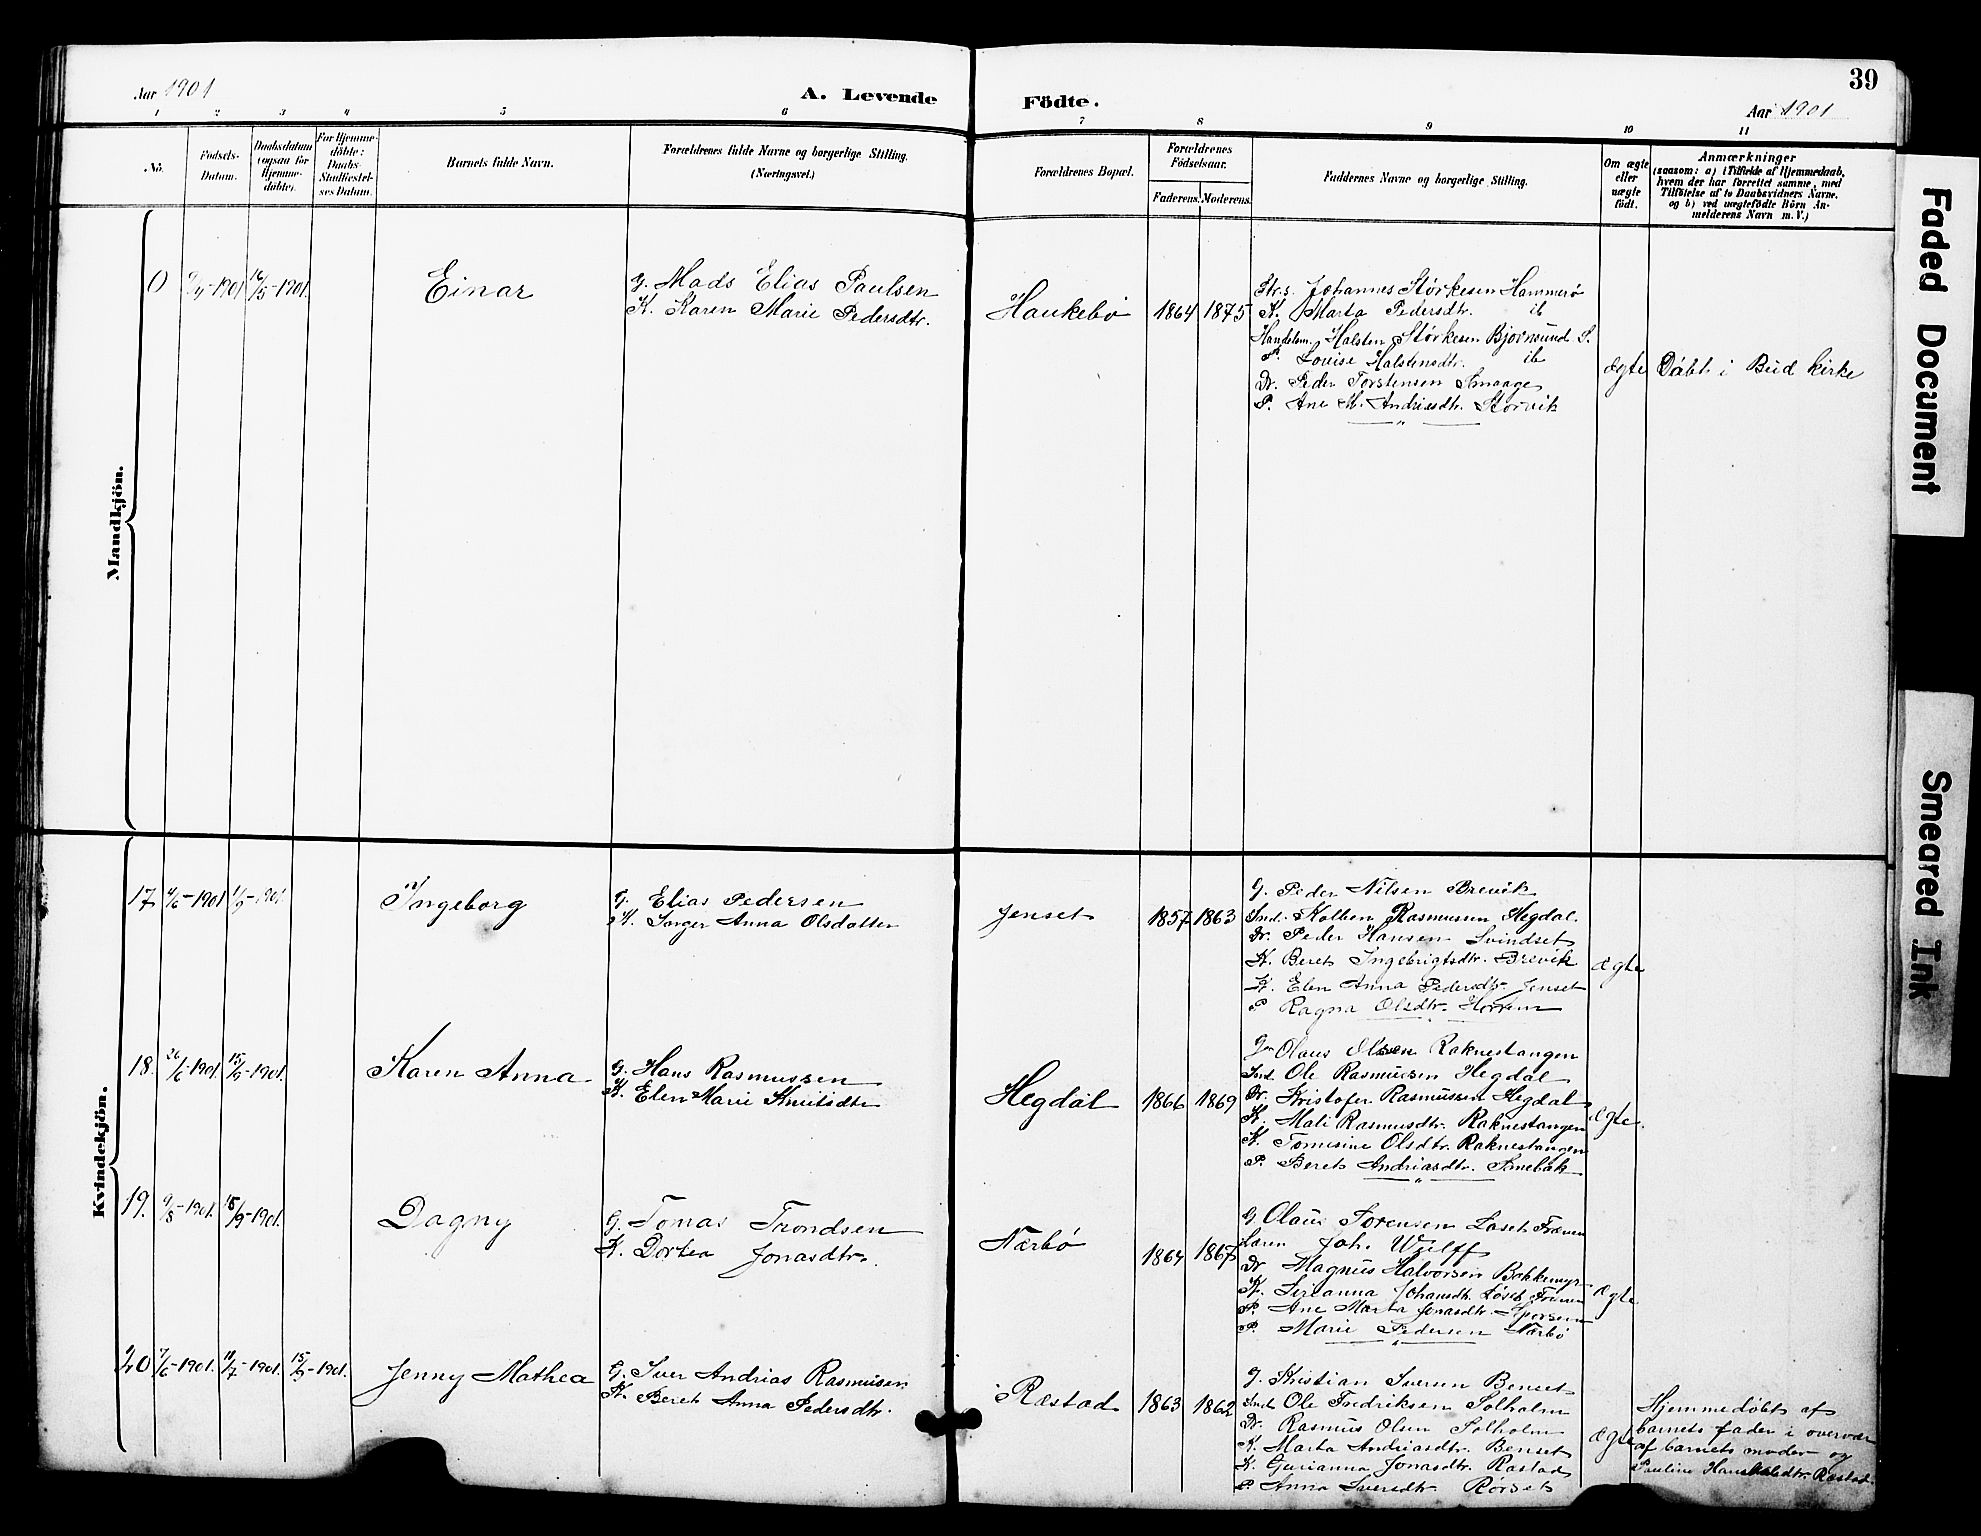 39
Aar 1901
A. Levende Födte.
Aar 1901
1 2 3 4 5 6 7 8 9 10 11
No.
Födsels-
Datum.
Daabsdatum
(ogsaa for
Hjemme-
döbte).
For Hjemme-
döbte:
Daabs-
Stadfæstel-
ses Datum.
Barnets fulde Navn.
Forældrenes fulde Navne og borgerlige Stilling.
(Næringsvei.)
Forældrenes Bopæl.
Forældrenes
Födselsaar.
Faderens. Moderens.
Faddernes Navne og borgerlige Stilling.
Om ægte
eller
uægte
födt.
Anmærkninger
(saasom: a) i Tilfælde af Hjemmedaab,
hvem der har forrettet samme, med
Tilföielse af to Daabsvidners Navne,
og b) ved uægtefödte Börn An-
melderens Navn m. V.)
Mandkjön.
0 9/4-1901 16/5-1901.
Einar
G. Mads Elias Paulsen
K. Karen Marie Pedersdtr.
Haukebø
1864 1875
Str.s. Johannes Størkesen Hammerö
K. Marta Pedersdtr. ib
Handelsm. Halsten Størkesen Bjornsund S.
P. Lovise Halstensdtr. ib
Dr. Peder Torstensen Smaage
P. Ane M. Andriasdtr. Storvik
ægte
Döbt i Bud kirke
Kvindekjön.
17 4/6-1901 1/9-1901.
Ingeborg
G. Elias Pedersen
K. Inger Anna Olsdatter
Jenset
1857 1863
G. Peder Nilsen Brevik
Ind. Kolben Rasmussen Hegdal.
Dr. Peder Hansen Svindset
K. Beret Ingebrigtsdtr. Brevik
K. Elen Anna Pedersdtr. Jenset
P. Ragna Olsdtr. Horrem
ægte
18. 26/6-1901 15/9-1901.
Karen Anna
G. Hans Rasmussen
K. Elen Marie Knutsdtr
Hegdal
1866 1869
Olaus Olsen Raknestangen
Ind. Ole Rasmussen Hegdal
Dr. Kristofer Rasmussen Hegdal
K. Mali Rasmusdtr. Raknestangen
K. Tomisine Olsdtr. Raknestangen
P. Beret Andriasdtr. Smebak
ægte.
19. 9/8-1901. 15/9-1901.
Dagny
G. Tomas Trondsen
K. Dortea Jonasdtr.
Nærbö
1864 1867
G. Olaus Sorensen Laset Frænen
Læren Joh. Wulff
Dr. Magnus Halvorsen Bakkemyr
K. Serianna Johansdtr. Löset Frænen
P. Ane Marta Jonasdtr.
P. Marie Pedersen Nærbö
ægte
20 7/6-1901. 11/7-1901. 15/9-1901.
Jenny Mathea
G. Iver Andrias Rasmusen
K. Beret Anna Pedersdtr.
Ræstad
1863 1862
G. Kristian Iversen Benset
Ind. Ole Fredriksen Solholm
Dr. Rasmus Olsen Solholm
K. Marta Andriasdtr. Benset
K. Gurianna Jonasdtr. Rastad
P. Anna Iversdtr. Rörset
ægte
Hjemmedöbt af
barnets fader i overvær
af barnets moder og
Pauline Ræstad.
Faded Document
Smeared Ink